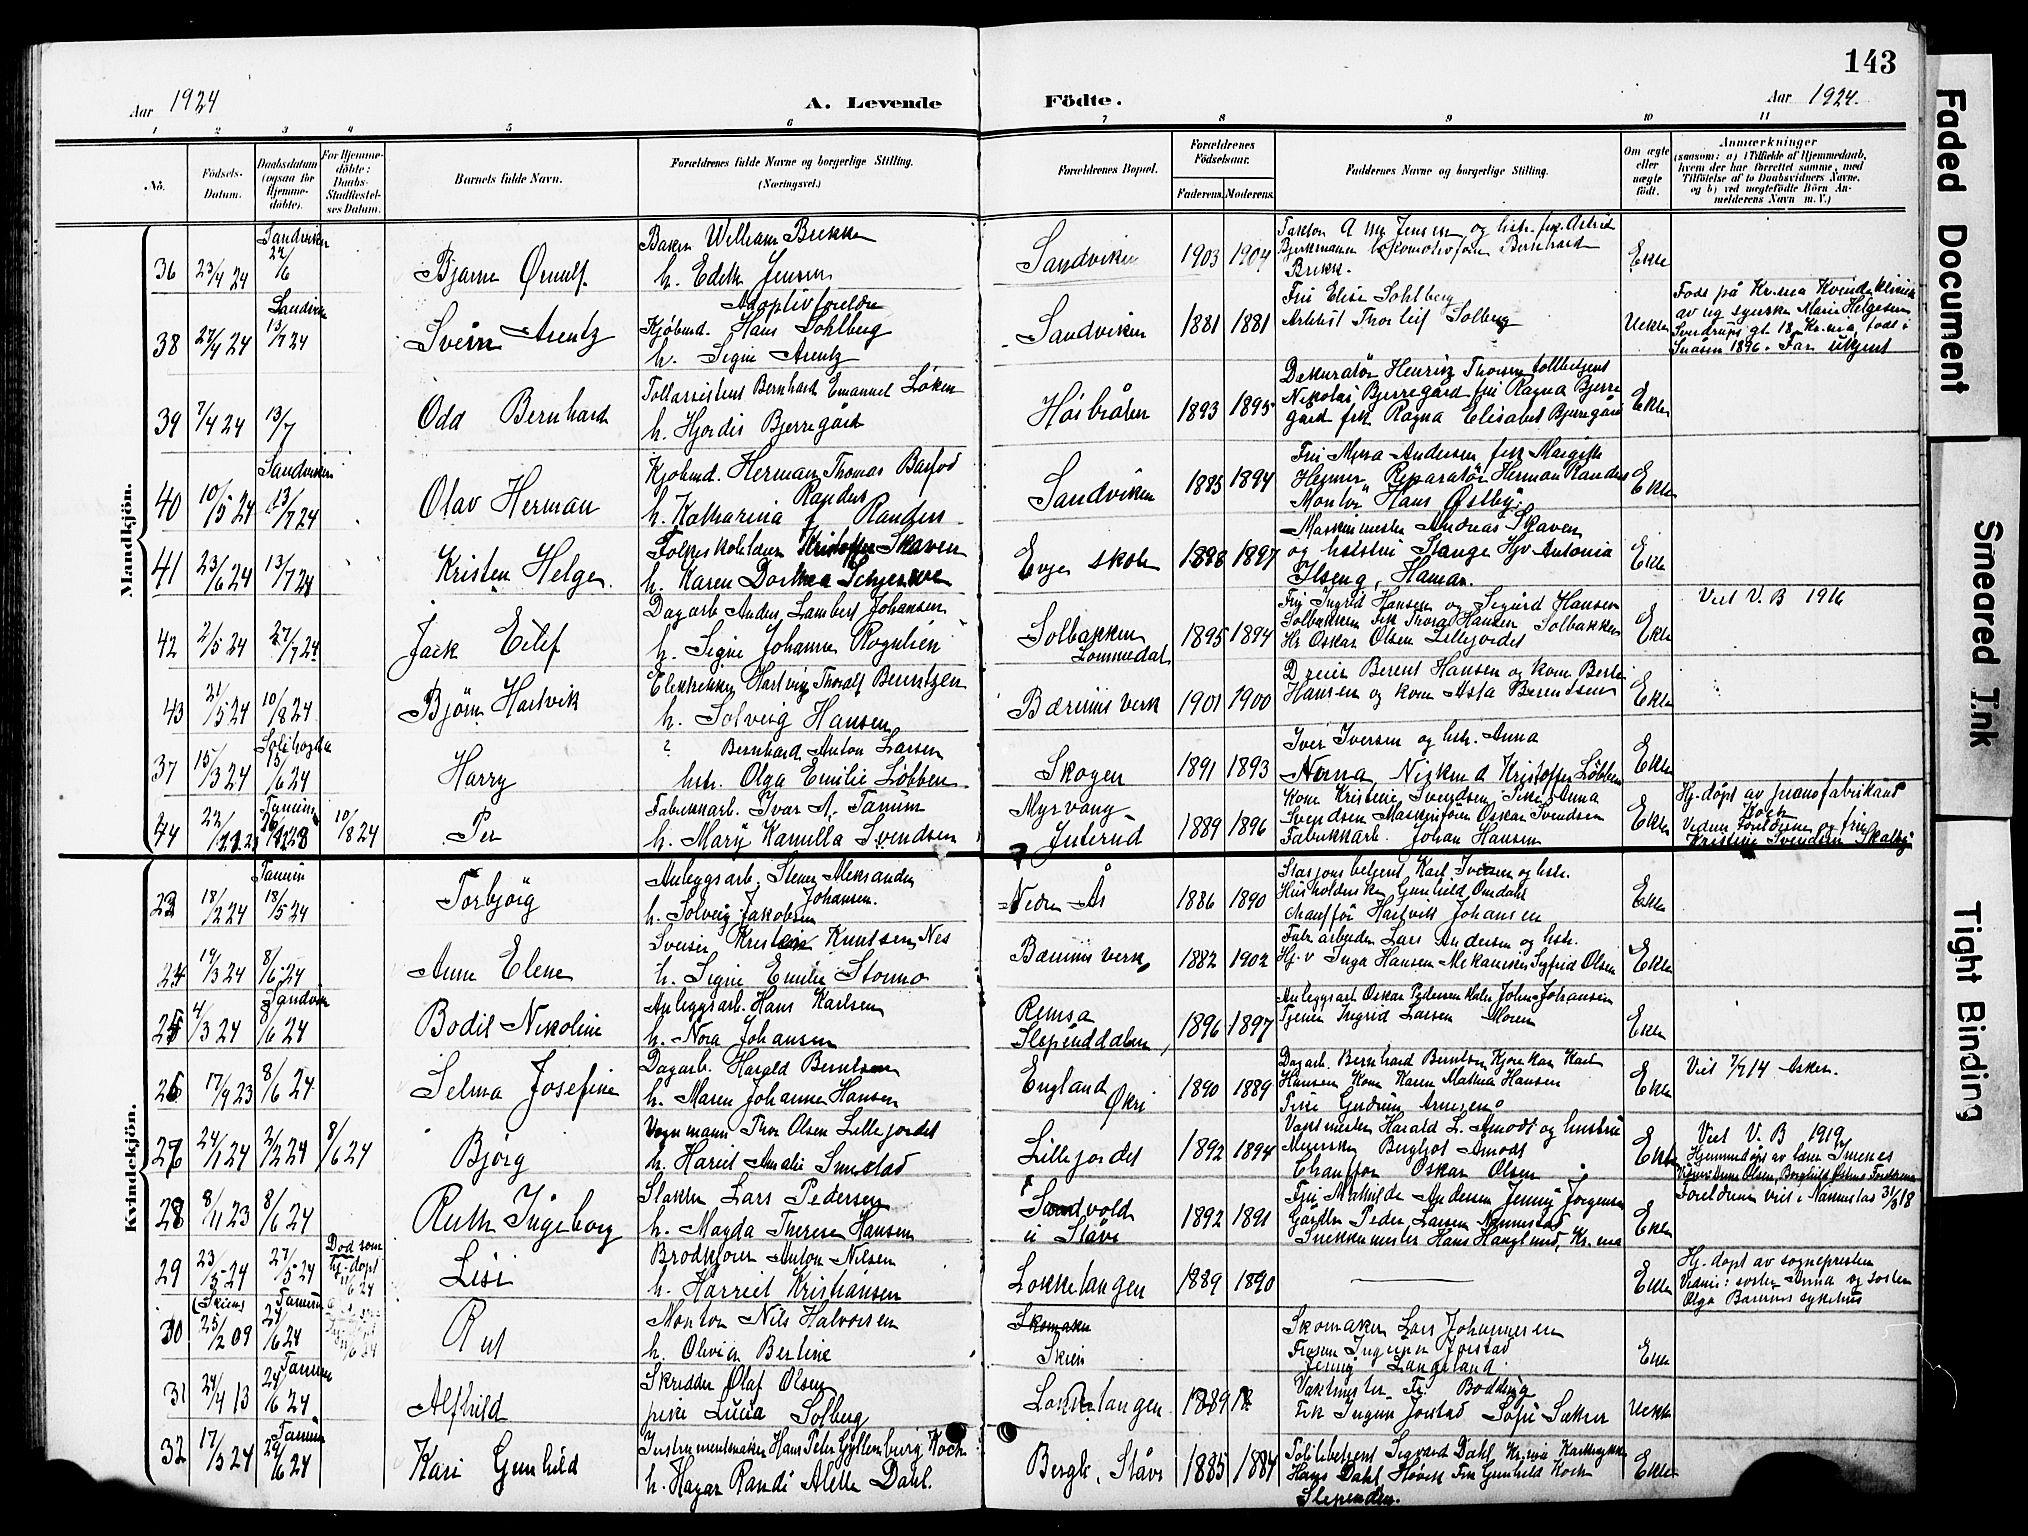 143
Aar 1924
A. Levende
Födte.
Aar 1924.
1 2 3 4 5 6 7 8 9 10 11
No.
Födsels-Datum.
Daabsdatum (ogsaa for Hjemmedöbte).
For Hjemmedöbte: Daabs-Stadfæstelses Datum.
Barnets fulde Navn.
Forældrenes fulde Navne og borgerlige Stilling.
(Næringsvei.)
Forældrenes Bopæl.
Forældrenes Födselsaar.
Faderens. Moderens.
Faddernes Navne og borgerlige Stilling.
Om ægte eller uægte födt.
Anmærkninger
(saasom: a) i Tilfælde af Hjemmedaab, hvem der har forrettet samme, med Tilföielse af to Daabsvidners Navne, og b) ved uægtefödte Börn Anmelderens Navn m. V.)
Mandkjön.
36 23/4 24 Sandviken 22/6 Bjarne Ørnulf. Baker William Brekke
h. Edith Jensen Sandviken 1903 1904 Ekte
38 27/4 24 Sandviken 13/7 24 Svein Arentz Adoptivforeldre
Kjöbmd. Hans Sohlberg
h. Signe Arentz Sandviken 1881 1881 Fru Elise Sohlberg
Arkitekt Thorleif Solberg Uekte Født på Kr.nia Kvindeklinik
av ug syerske Marie Helgesen
Svendrups gt. 18 Kr.nia, født i
Snåsen 1896. Far ukjent
39 7/4 24 13/7 Odd Bernhard Tollassistent Bernhard Emanuel Løken
h. Hjørdis Bjerregård Høibråten 1893 1895 Dekuratør Henrik Thorsen tollbetjent
Nikolai Bjerregård fru Ragna Bjerre
gård frk Ragna Elisabet Bjerregård Ekte
40 10/5 24 Sandviken 13/7 24 Olav Herman Kjøbmd. Herman Thomas Barfod
Randers
h. Katharina Randers Sandviken 1885 1894 Reparatør Herman Randers
Montør Hans Østby. Ekte
41 23/6 24 13/7 24 Kristen Helge. Folkeskolelærer Kristoffer Skaven
h. Karen Dorthea Evje skole 1888 1897 Maskinmester Andreas Skaven
og hustru Stange Hjv Antonia
Ilseng, Hamar. Ekte
42 2/5 24 27/7 24 Jack Eilef Dagarb Anders Lambert Johansen
h. Signe Johanne Rognlien Solbakken
Lommedal 1895 1894 Fru Ingrid Hansen og Sigurd Hansen
Solbakken frk Thora Hansen Solbakken
Hr Oskar Olsen Lillejordet Ekte Viet V. B 1916
43 21/5 24 10/8 24 Bjørn Hartvik Elektriker Hartvig Thoralf Berntzen
h. Solveig Hansen Bærums Verk 1901 1900 Dreier Berent Hansen og kone Berte
Hansen og kone Asta Berndsen Ekte
37 15/3 24 Solihøgda 15/6 24 Harry ? Bernhard Anton Larsen
hstr. Olga Emilie Løbben Skogen 1891 1893 Iver Iversen og hstr. Anna
Kristoffer Løbben Ekte
44 Tanum 10/8 24 Per Fabrikkarb. Ivar A. Tanum
h. Mary Kamilla Svendsen Myrvang
Juterud 1889 1896 Kone Kristine Svendsen Pike Anna
Svendsen Maskinfører Oskar Svendsen
Fabrikkarb. Johan Hansen Ekte Hj-døpt av pianofabrikant
Vidner Foreldrene og fru
Kristine Svendsen Skallum
Kvindekjön.
18/2 24 Tanum 18/5 24 Torbjörg Anleggsarb. Stener Aleksander
Johansen.
h. Solveig Jakobsen Nedre Ås 1886 1890 Stasjonsbetjent Karl Iversen og hstr.
Husholderske Gunhild Omdahl
Chauffør Hartvik Johansen Ekte
24 19/3 24 8/6-24 Anne Elene Sveiser Kristen Knutsen Nes
h. Signe Emilie Stormo Bærums verk 1882 1902 Fabr arbeider Lars Andersen og hstr.
Hj.v Inga Hansen Mekaniker Sigfrid Olsen Ekte
25 4/3 24 Sandviken 8/6 24 Bodil Nikoline Anleggsarb. Hans Karlsen
h. Nora Johansen Remsa
Slependdalen 1896 1897 Anleggsarb Oskar Pedersen Maler John Johansen
Tjener Ingrid Larsen Moren Ekte
26 17/9 23 8/6 24 Selma Josefine Dagarb. Harald Berntsen
h. Maren Johanne Hansen England
Økri 1890 1889 Dagarb. Bernhard Berntsen Kjørekar Karl
Hansen Kone Karen Mathea Hansen
Pike Gudrun Arnesen Ekte Viet 7/7 14 Asker.
27 24/1 24 2/2 24 8/6 24 Bjørg Vognmann Thor Olsen Lillejordet
h. Harriet Amalie Smestad Lillejordet 1892 1894 Vaktmester Harald L. Amodt og hustru
Meierske Bergljot Amodt
Chauffør Oskar Olsen Ekte Viet V. B 1919
Hjemmedøpt av lærer Smenes
28 8/11 23 8/6 24 Ruth Ingeborg Slakter Lars Pedersen
h. Magda Therese Hansen Sandvold
i Stavs 1892 1891 Fru Mathilde Andersen Jenny Jørgensen
Gårdbr Peder Larsen Nannestad
Snekkermester Hans Hauglund, Kr.nia Ekte Foreldrene viet i Nannestad 31/3 18
29 23/5-24 27/5 24 Død som
hj-døpt
11/6 24 Lisi Brødkjører Anton Nilsen
h. Harriet Kristiansen Løkketangen 1889 1890 Ekte Hj.døpt av sognepresten
Vidner: søster Anna og søster
Olga Bærums sykehus
30 (Skien) 25/2 09 Tanum 24/6 24 Rut Montør Nils Halvorsen
h. Olivia Berline Skomaker
Skien Skomaker Lars Johannesen
Frøken Ingunn Jorstad
Jenny Langeland. Ekte
31 24/4 13 Tanum 24/6 24 Alfhild Skredder Olaf Olsen
pike Lucia Solberg Løkketangen 1889 Vaktmester Fr. Bødding
Frk Ingunn Jorstad Sofie Sæther Uekte
32 17/3 24 Tanum 29/6 24 Kari Gunhild Instrumentmaker Hans Peter Gyllenborg Koch
h. Hagar Randi Alette Dahl. Bergli, Stavs 1885 1884 Politibetjent Sigvard Dahl Kr.nia
Hans Dahl Høvik Fru Gunhild Koch
Slependen. Ekte
Faded Document
Smeared Ink
Tight Binding